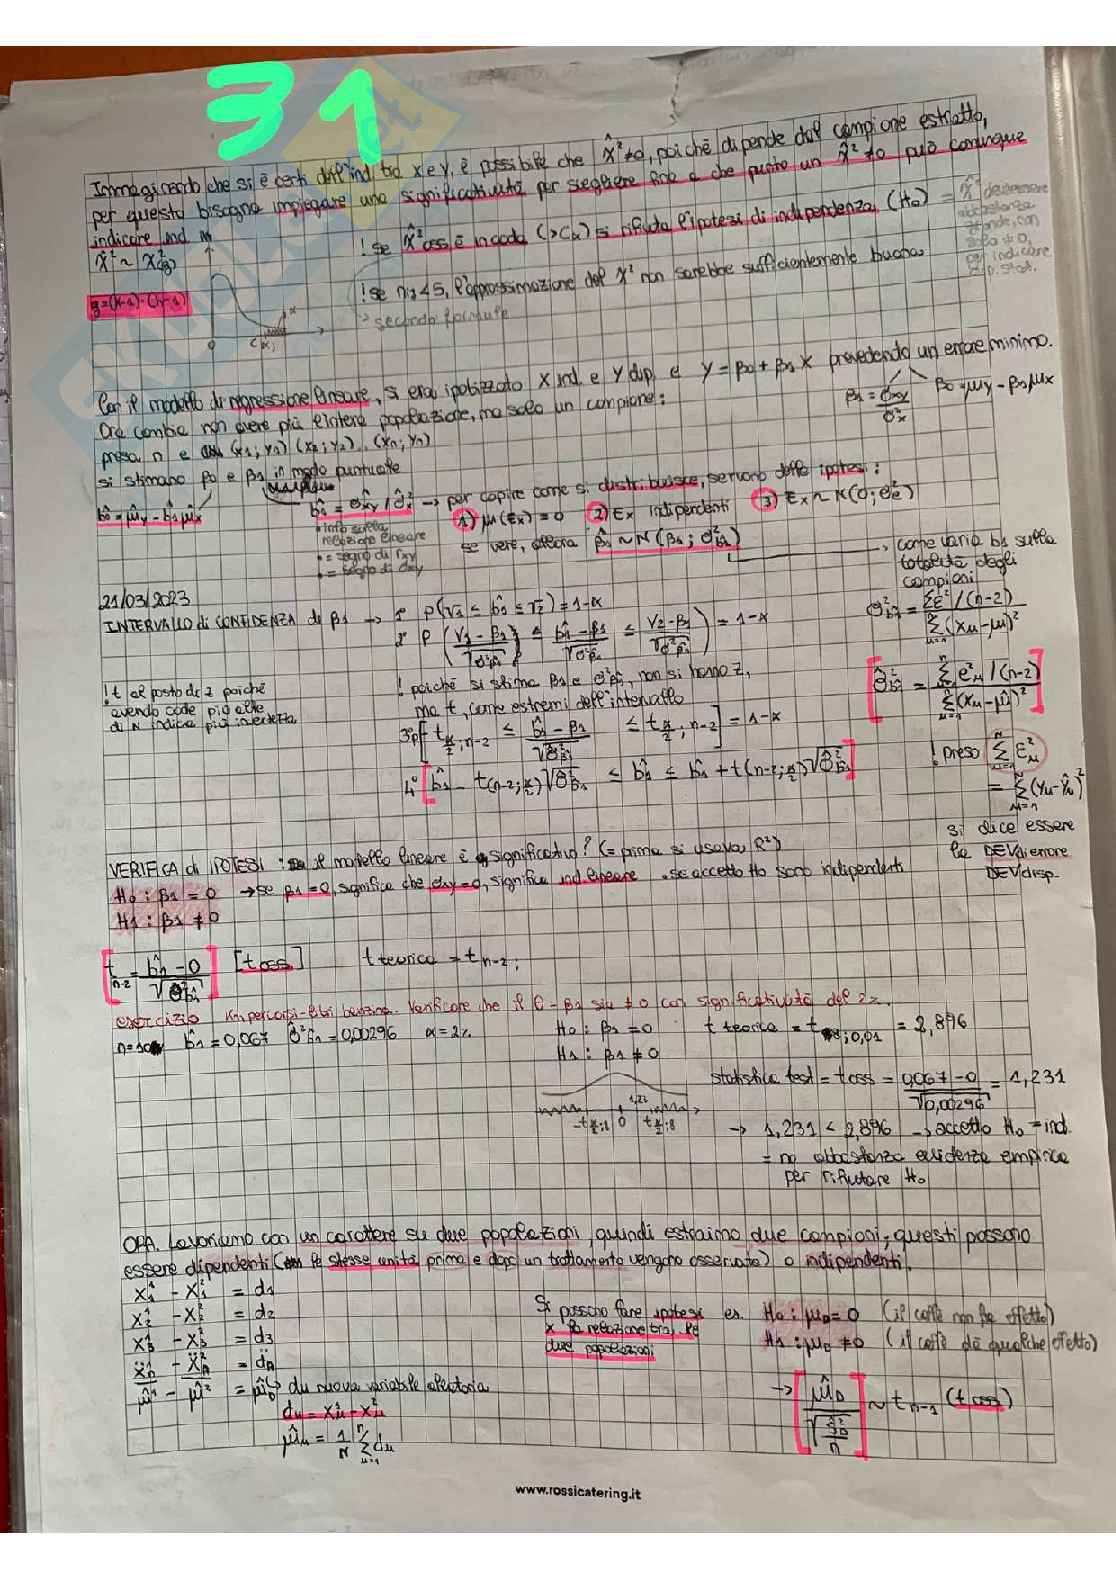 31
Immaginando che si è certi dell'ind. tra X e Y, è possibile che X̂²≠0, poiché dipende dal campione estratto,
per questo bisogna impiegare una significatività per scegliere fino a che punto un X̂²≠0 può comunque
indicare ind.
X̂² ~ X²(g)
! se X̂²oss è in coda (>Cα) si rifiuta l'ipotesi di indipendenza (H₀) = X̂² dev'essere
abbastanza
grande, con
solo ≠ 0,
per indicare
dip. stat.
g=(k-1)·(h-1)
! se nij<5, l'approssimazione del X² non sarebbe sufficientemente buona
secondo formule
0
Con il modello di regressione lineare, si era ipotizzato X ind. e Y dip. e Y = β₀ + β₁ X prevedendo un errore minimo.
β₁ = σxy / σ²x
β₀ = μy - β₁μx
Ora cambia non avere più l'intera popolazione, ma solo un campione:
presa n e (x₁; y₁) (x₂; y₂)..(xn; yn)
si stimano β₀ e β₁ in modo puntuale
b̂₀ = μ̂y - b̂₁μ̂x
b̂₁ = σ̂xy / σ̂²x → per capire come si distribuisce, servono delle ipotesi:
• info sulla
relazione lineare
• = segno di rxy
• = segno di σxy
1) μ(εx) = 0 2) εx indipendenti 3) εx ~ N(0; σ²e)
se vere, allora β̂₁ ~ N(β₁; σ²b̂₁)
come varia b₁ sulla
totalità degli
campioni
21/03/2023
INTERVALLO di CONFIDENZA di β₁ → 1° P(V₁ ≤ b̂₁ ≤ V₂) = 1-α
2° P( (V₁ - β₁)/√σ²β̂₁ ≤ (b̂₁ - β₁)/√σ²β̂₁ ≤ (V₂ - β₁)/√σ²β̂₁ ) = 1-α
σ²b̂₁ = Σε²/(n-2) / Σ(xu-μ)²
! t al posto di z poiché
avendo code più alte
di N indica più incertezza
! poiché si stima β₁ e σ²β̂₁, non si hanno z,
ma t, come estremi dell'intervallo
σ̂²b̂₁ = Σ e²u /(n-2) / Σ (xu-μ̂)²
3° P[ tα/2; n-2 ≤ (b̂₁ - β₁)/√σ̂²b̂₁ ≤ tα/2; n-2 ] = 1-α
4° [ b̂₁ - t(n-2; α/2) √σ̂²b̂₁ ≤ b̂₁ ≤ b̂₁ + t(n-2; α/2) √σ̂²b̂₁ ]
! preso Σ ε²u
= Σ (yu - ŷu)²
si dice essere
la DEV di errore
DEV disp.
VERIFICA di IPOTESI : se il modello lineare è significativo? (= prima si usava R²)
H₀ : β₁ = 0 → se β₁ = 0, significa che σxy = 0, significa ind lineare • se accetto H₀ sono indipendenti
H₁ : β₁ ≠ 0
[ t n-2 = (b̂₁ - 0)/√σ̂²b̂₁ ] [toss] t teorica = t n-2;
esercizio Km percorsi-litri benzina. Verificare che il C - β₁ sia ≠ 0 con significatività del 2%.
n=10 b̂₁ = 0,067 σ̂²b̂₁ = 0,00296 α = 2%
H₀ : β₁ = 0 t teorica = t 8; 0,01 = 2,896
H₁ : β₁ ≠ 0
statistica test = toss = (0,067 - 0)/√0,00296 = 1,231
-tα/2;8 0 tα/2;8
→ 1,231 < 2,896 → accetto H₀ = ind.
= no abbastanza evidenza empirica
per rifiutare H₀
ORA. Lavoriamo con un carattere su due popolazioni, quindi estraiamo due campioni, questi possono
essere dipendenti (le stesse unità prima e dopo un trattamento vengono osservato) o indipendenti.
X¹₁ - X²₁ = d₁
X¹₂ - X²₂ = d₂
X¹₃ - X²₃ = d₃
X¹n - X²n = dn
μ̂¹ - μ̂² = μ̂D → du nuova variabile aleatoria
du = X¹u - X²u
μ̂u = 1/N Σ du
Si possono fare ipotesi es. H₀ : μD = 0 (il caffè non fa effetto)
x la relazione tra le
due popolazioni
H₁ : μD ≠ 0 (il caffè dà qualche effetto)
→ [ μ̂D / √(σ̂²D/n) ] ~ t n-1 (toss)
www.rossicatering.it